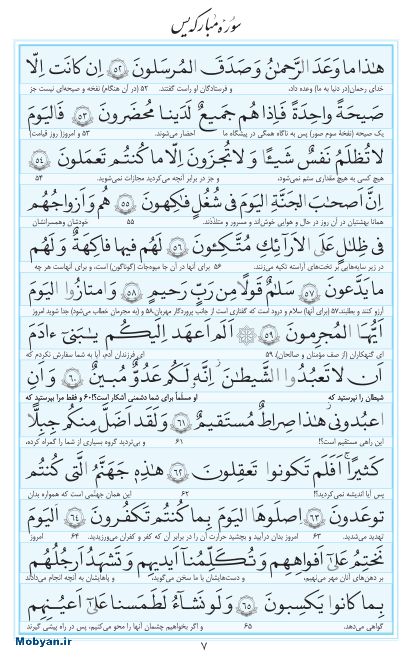 سوره مبارکه یس
هٰذا ما وَعَدَ الرَّحمٰنُ وَصَدَقَ المُرسَلونَ ﴿٥٢﴾ اِن كانَت اِلّا
خدای رحمان(در دنیا به ما) وعده داد، و فرستادگان او راست گفتند. ۵۲ (در آن هنگام) نفخه و صیحه‌ای نیست جز
صَيحَةً واحِدَةً فَاِذا هُم جَميعٌ لَدَينا مُحضَرونَ ﴿٥٣﴾ فَاليَومَ
یک صیحه (نفخهٔ سوم صور) پس به ناگاه همگی در پیشگاه ما احضار می‌شوند. ۵۳ و امروز( روز قیامت)
لا تُظلَمُ نَفسٌ شَيـًٔا وَلا تُجزَونَ اِلّا ما كُنتُم تَعمَلونَ ﴿٥٤﴾
هیچ کسی به هیچ مقداری ستم نمی‌شود، و جز در برابر آنچه می‌کردید مجازات نمی‌شوید. ۵۴
اِنَّ اَصحٰبَ الجَنَّةِ اليَومَ فى شُغُلٍ فٰكِهونَ ﴿٥٥﴾ هُم وَاَزواجُهُم
همانا بهشتیان در آن روز در حال و هوایی خوش‌اند و مسرور و متلذّذند. ۵۵ خودشان وهمسرانشان
فى ظِلٰلٍ عَلَى الاَرائِكِ مُتَّكِـٔونَ ﴿٥٦﴾ لَهُم فيها فاكِهَةٌ وَلَهُم
در زیر سایه‌هایی بر تخت‌های آراسته تکیه می‌زنند. ۵۶ برای آنها در آن جا میوه‌جات (گوناگون) است، و برای آنهاست هر چه
ما يَدَّعونَ ﴿٥٧﴾ سَلٰمٌ قَولًا مِن رَبٍّ رَحيمٍ ﴿٥٨﴾ وَامتازُوا اليَومَ
آرزو کنند و بطلبند.۵۷ (برای آنها) سلام و درود است که گفتاری است از جانب پروردگار مهربان.۵۸ و (به مجرمان خطاب می‌شود) جدا شوید امروز
اَيُّهَا المُجرِمونَ ﴿٥٩﴾ اَلَم اَعهَد اِلَيكُم يٰبَنى ءادَمَ
ای گنهکاران (از صف مؤمنان و صالحان). ۵۹ ای فرزندان آدم، آیا به شما سفارش نکردم که
اَن لا تَعبُدُوا الشَّيطٰنَ اِنَّهُ لَكُم عَدُوٌّ مُبينٌ ﴿٦٠﴾ وَاَنِ
شیطان را نپرستید که او مسلّماً برای شما دشمنی آشکار است؟!۶۰ و فقط مرا بپرستید که
اعبُدونى هٰذا صِراطٌ مُستَقيمٌ ﴿٦١﴾ وَلَقَد اَضَلَّ مِنكُم جِبِلًّا
این راهی مستقیم است؟! ۶۱ و بی‌تردید گروه بسیاری از شما را گمراه کرده،
كَثيرًا اَفَلَم تَكونوا تَعقِلونَ ﴿٦٢﴾ هٰذِهِ جَهَنَّمُ الَّتى كُنتُم
پس آیا اندیشه نمی‌کردید؟! ۶۲ این همان جهنّمی است که همواره بدان
توعَدونَ ﴿٦٣﴾ اِصلَوهَا اليَومَ بِما كُنتُم تَكفُرونَ ﴿٦٤﴾ اَليَومَ
تهدید می‌شدید. ۶۳ امروز بدان درآیید و بچشید حرارت آن را در برابر آن که کفر و کفران می‌ورزیدید. ۶۴ امروز
نَختِمُ عَلىٰ اَفواهِهِم وَتُكَلِّمُنا اَيديهِم وَتَشهَدُ اَرجُلُهُم
بر دهن‌های آنان مهر می‌نهیم، و دست‌هایشان با ما سخن می‌گوید، و پاهایشان به آنچه انجام می‌دادند
بِما كانوا يَكسِبونَ ﴿٦٥﴾ وَلَو نَشاءُ لَطَمَسنا عَلىٰ اَعيُنِهِم
گواهی می‌دهد. ۶۵ و اگر بخواهیم چشمان آنها را محو می‌کنیم، پس در راه پیشی گیرند
Mobyan.ir
۷